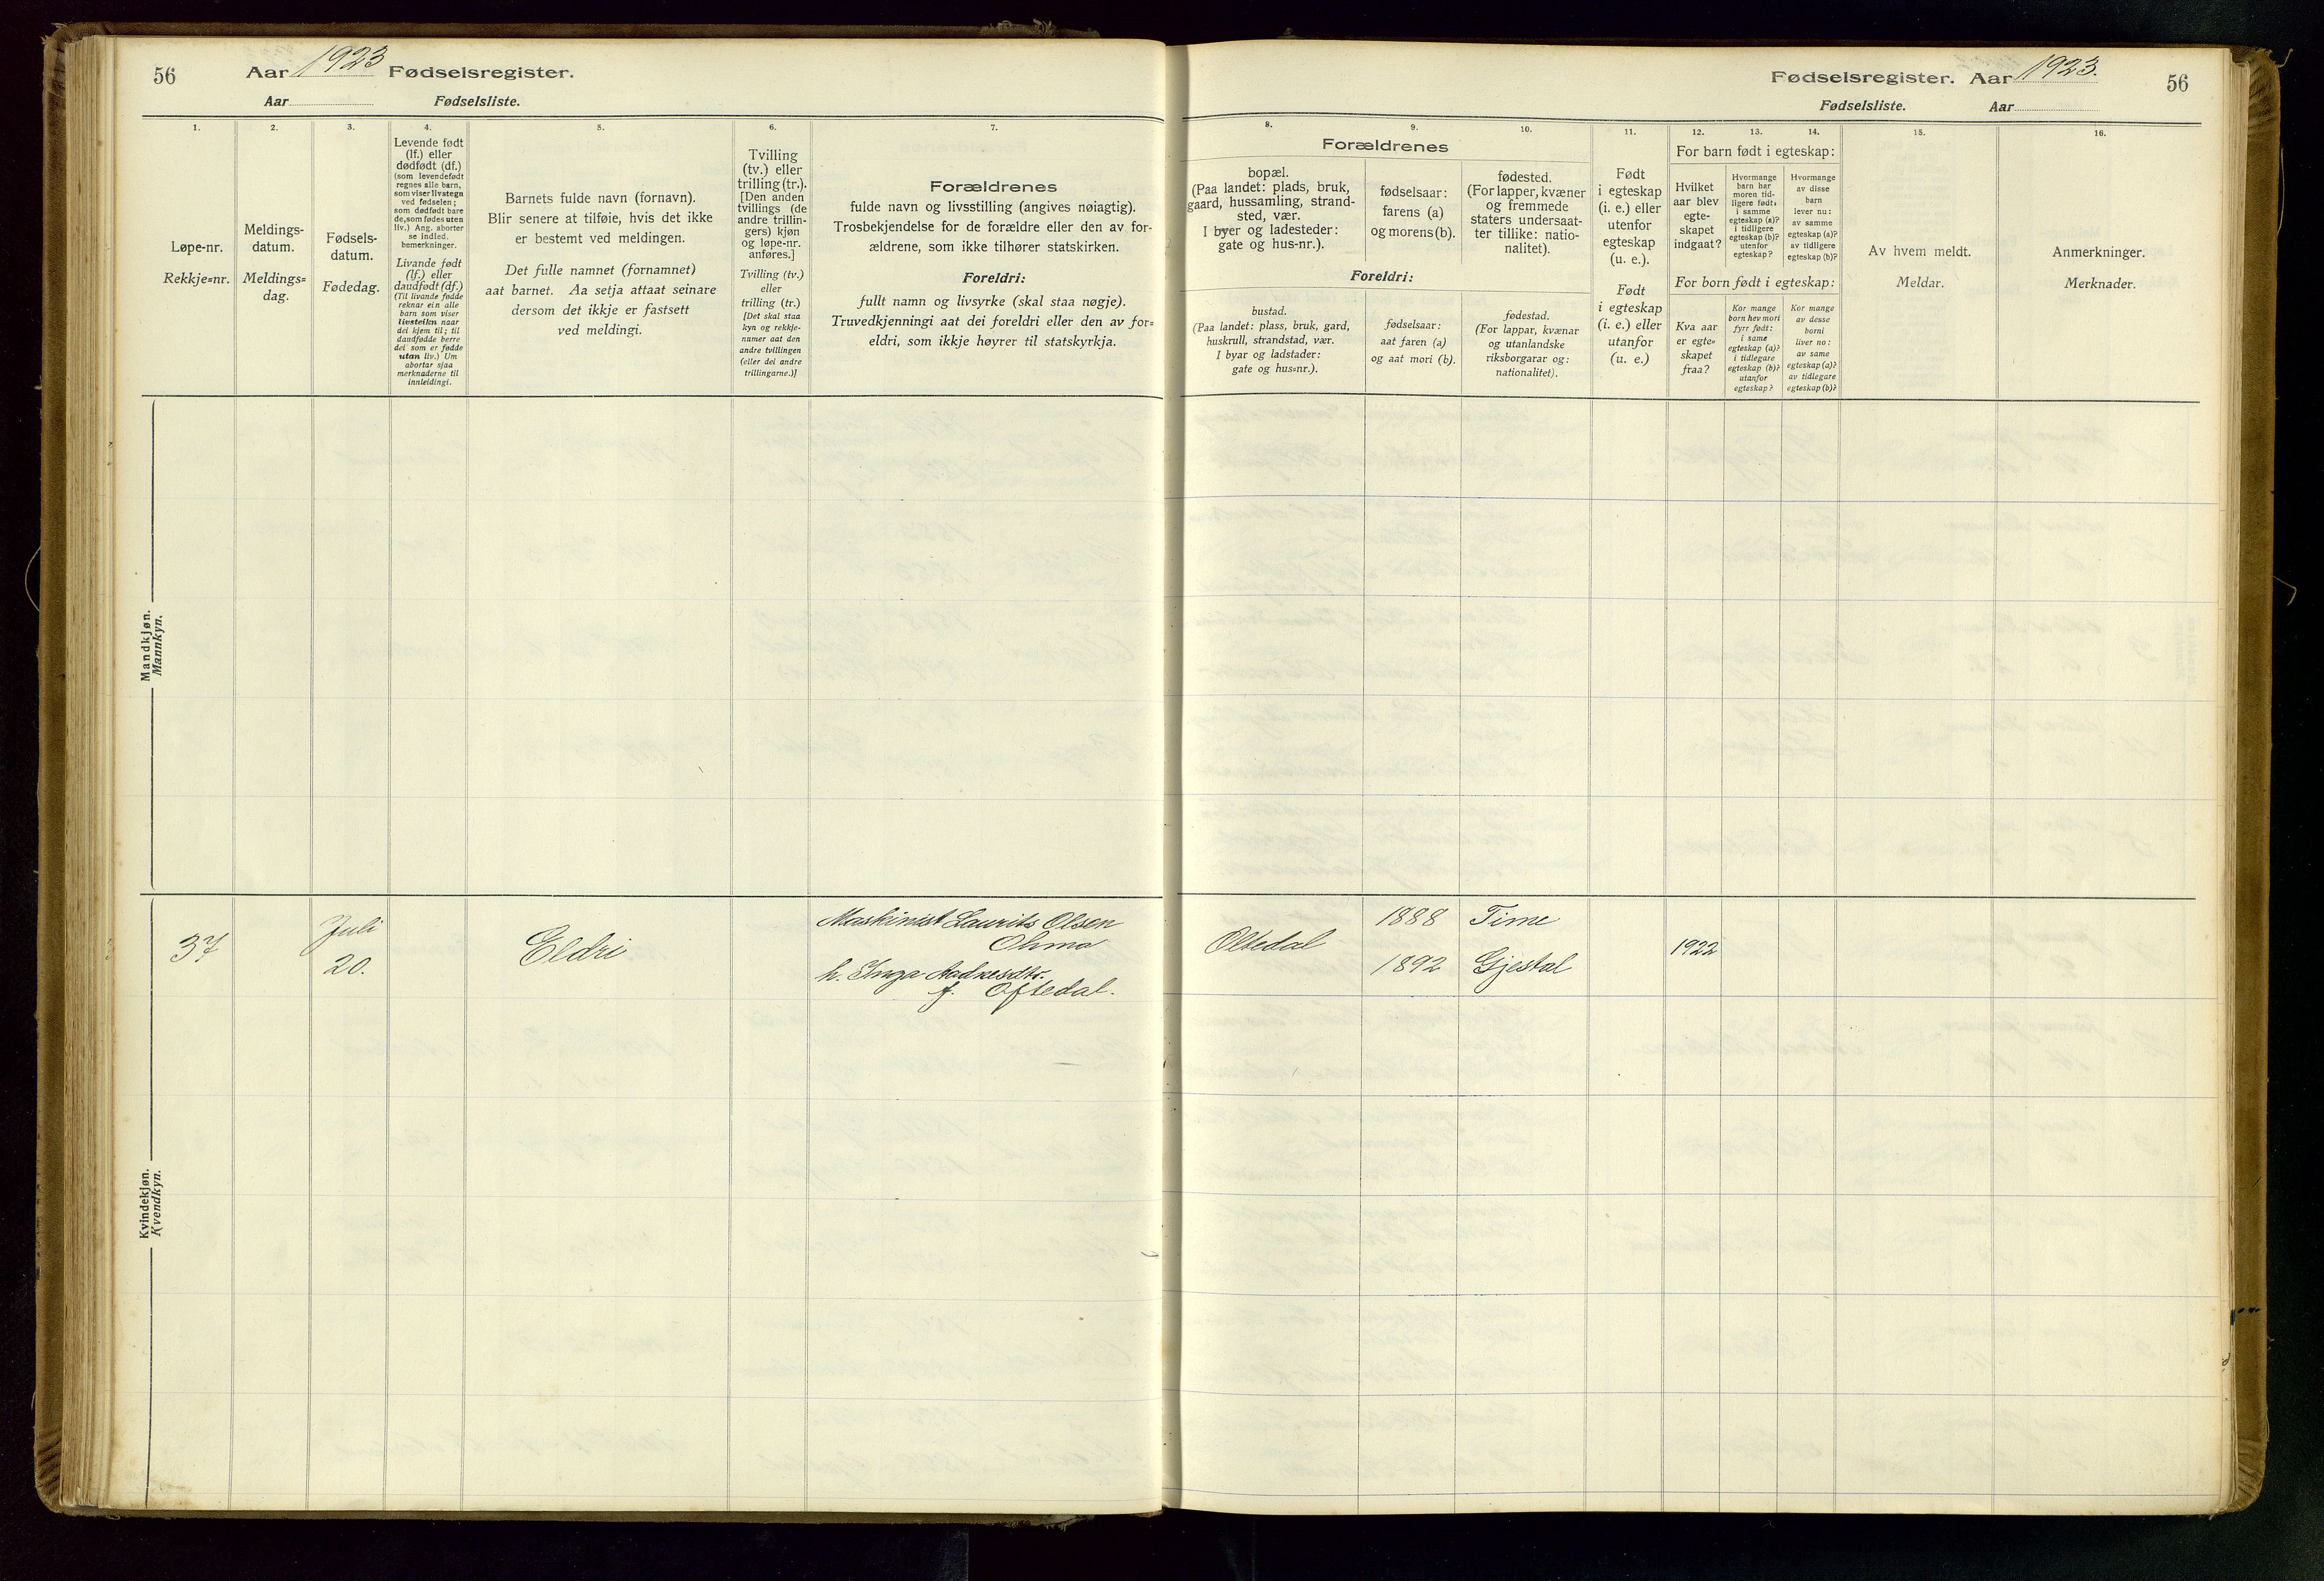 56
Aar 1923 Fødselsregister.
Aar Fødselsliste.
1.
Løpe-nr.
Rekkje=nr.
2.
Meldings-
datum.
Meldings=
dag.
3.
Fødsels-
datum.
Fødedag.
4.
Levende født
(lf.) eller
dødfødt (df.)
(som levendefødt
regnes alle barn,
som viser livstegn
ved fødselen;
som dødfødt bare
de, som fødes uten
liv.) Ang. aborter
se indled.
bemerkninger.
Livande født
(lf.) eller
daudfødt (df.)
(Til livande fødde
reknar ein alle
barn som viser
livsteikn naar
dei kjem til; til
daudfødde berre
dei som er fødde
utan liv.) Um
abortar sjaa
merknaderne til
innleidingi.
5.
Barnets fulde navn (fornavn).
Blir senere at tilføie, hvis det ikke
er bestemt ved meldingen.
Det fulle namnet (fornamnet)
aat barnet. Aa setja attaat seinare
dersom det ikkje er fastsett
ved meldingi.
6.
Tvilling
(tv.) eller
trilling (tr.).
[Den anden
tvillings (de
andre trillin-
gers) kjøn
og løpe-nr.
anføres.]
Tvilling (tv.)
eller
trilling (tr.)
[Det skal staa
kyn og rekkje-
numer aat den
andre tvillingen
(eller dei andre
trillingarne.)]
7.
Forældrenes
fulde navn og livsstilling (angives nøiagtig).
Trosbekjendelse for de forældre eller den av for-
ældrene, som ikke tilhører statskirken.
Foreldri:
fullt namn og livsyrke (skal staa nøgje).
Truvedkjenningi aat dei foreldri eller den av for=
eldri, som ikkje høyrer til statskyrkja.
Mandkjøn.
Mannkyn.
Kvindekjøn.
Kvendkyn.
37
Juli
20.
Eldri
Maskinist Laurits Olsen
Ohma
h. Inga Aadnesdtr.
f. Oftedal.
Fødselsregister. Aar 1923.
56
Fødselsliste. Aar
8.
9.
10.
Forældrenes
bopæl.
(Paa landet: plads, bruk,
gaard, hussamling, strand-
sted, vær.
I byer og ladesteder:
gate og hus-nr.).
fødselsaar:
farens (a)
og morens (b).
fødested.
(For lapper, kvæner
og fremmede
staters undersaat-
ter tillike: natio-
nalitet).
Foreldri:
bustad.
(Paa landet: plass, bruk, gard,
huskrull, strandstad, vær.
I byar og ladstader:
gate og hus=nr.).
fødselsaar:
aat faren (a)
og aat mori (b).
fødestad.
(For lappar, kvænar
og utanlandske
riksborgarar og:
nationalitet).
11.
Født
i egteskap
(i. e.) eller
utenfor
egteskap
(u. e.).
Født
i egteskap
(i. e.) eller
utanfor
egteskap
(u. e.)
12.
13.
14.
For barn født i egteskap:
Hvilket
aar blev
egte-
skapet
indgaat?
Hvormange
barn har
moren tid-
ligere født:
i samme
egteskap (a)?
i tidligere
egteskap (b)?
utenfor
egteskap?
Hvormange
av disse
barn
lever nu:
av samme
egteskap (a)?
av tidligere
egteskap (b)?
For born født i egteskap:
Kva aar
er egte=
skapet
fraa?
Kor mange
born hev mori
fyrr født:
i same
egteskap (a)?
i tidlegare
egteskap (b)?
utanfor
egteskap?
Kor mange
av desse
borni
liver no:
av same
egteskap (a)?
av tidlegare
egteskap (b)?
15.
Av hvem meldt.
Meldar.
16.
Anmerkninger.
Merknader.
Oltedal
1888 Time
1892 Gjestal
1922